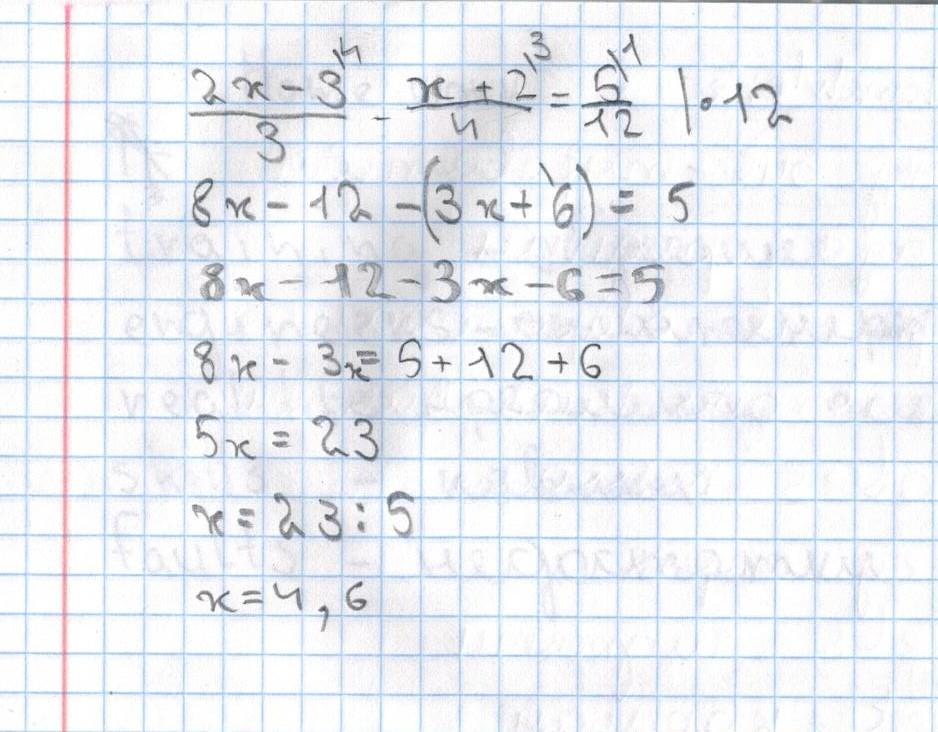 (2x - 3)/3 \4 - (x + 2)/4 \3 = 5/12 \1 | · 12
8x - 12 - (3x + 6) = 5
8x - 12 - 3x - 6 = 5
8x - 3x = 5 + 12 + 6
5x = 23
x = 23 : 5
x = 4,6